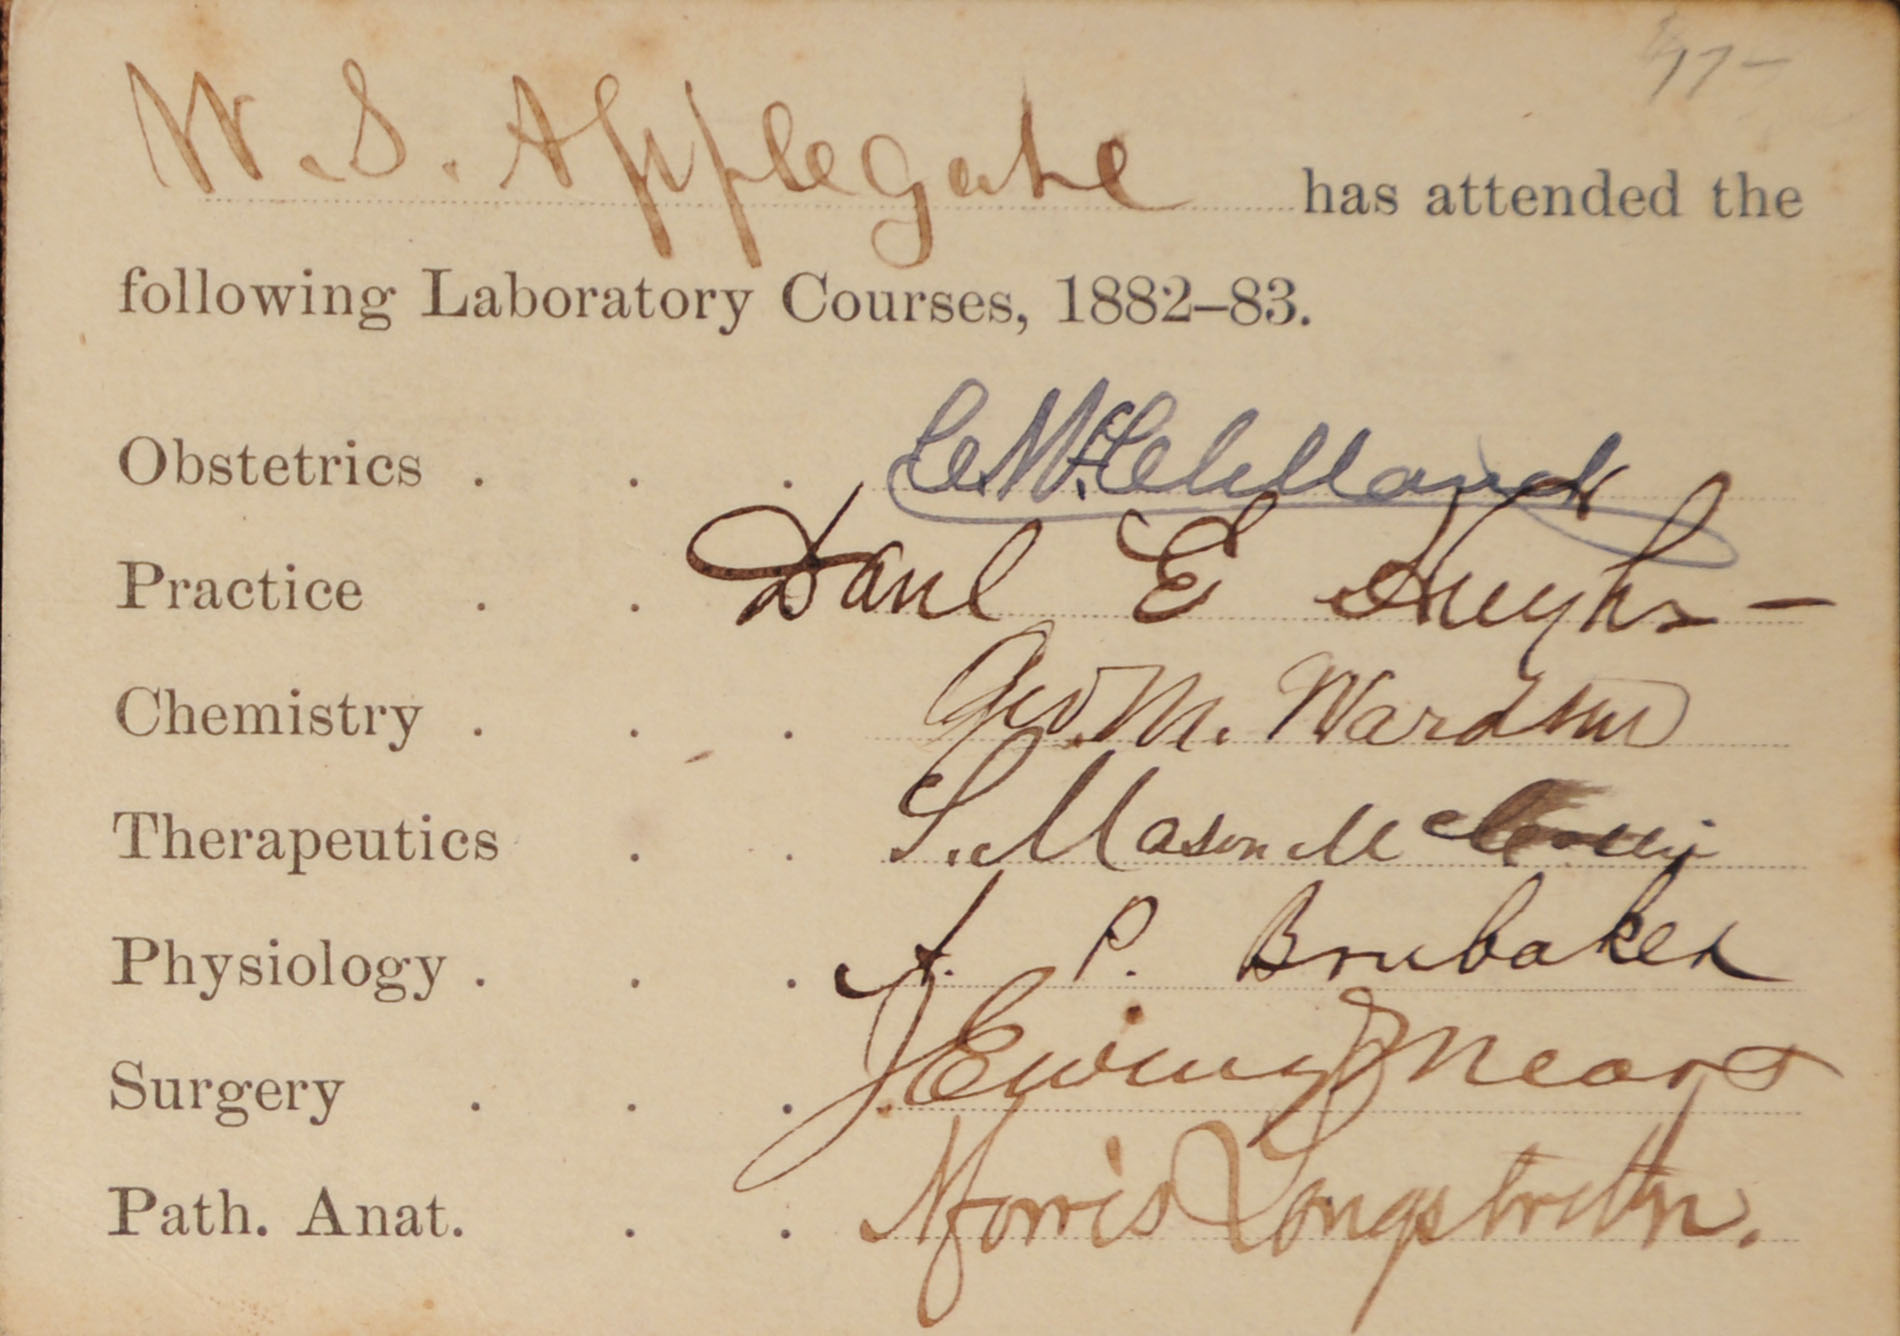 77-
W. S. Applegate has attended the
following Laboratory Courses, 1882–83.
Obstetrics . . . C. McClelland
Practice . . Danl E Hughes -
Chemistry . . . Geo. M. Ward
Therapeutics . . S. Mason McCollin
Physiology . . . A. P. Brubaker
Surgery . . . J. Ewing Mears
Path. Anat. . . Morris Longstreth.